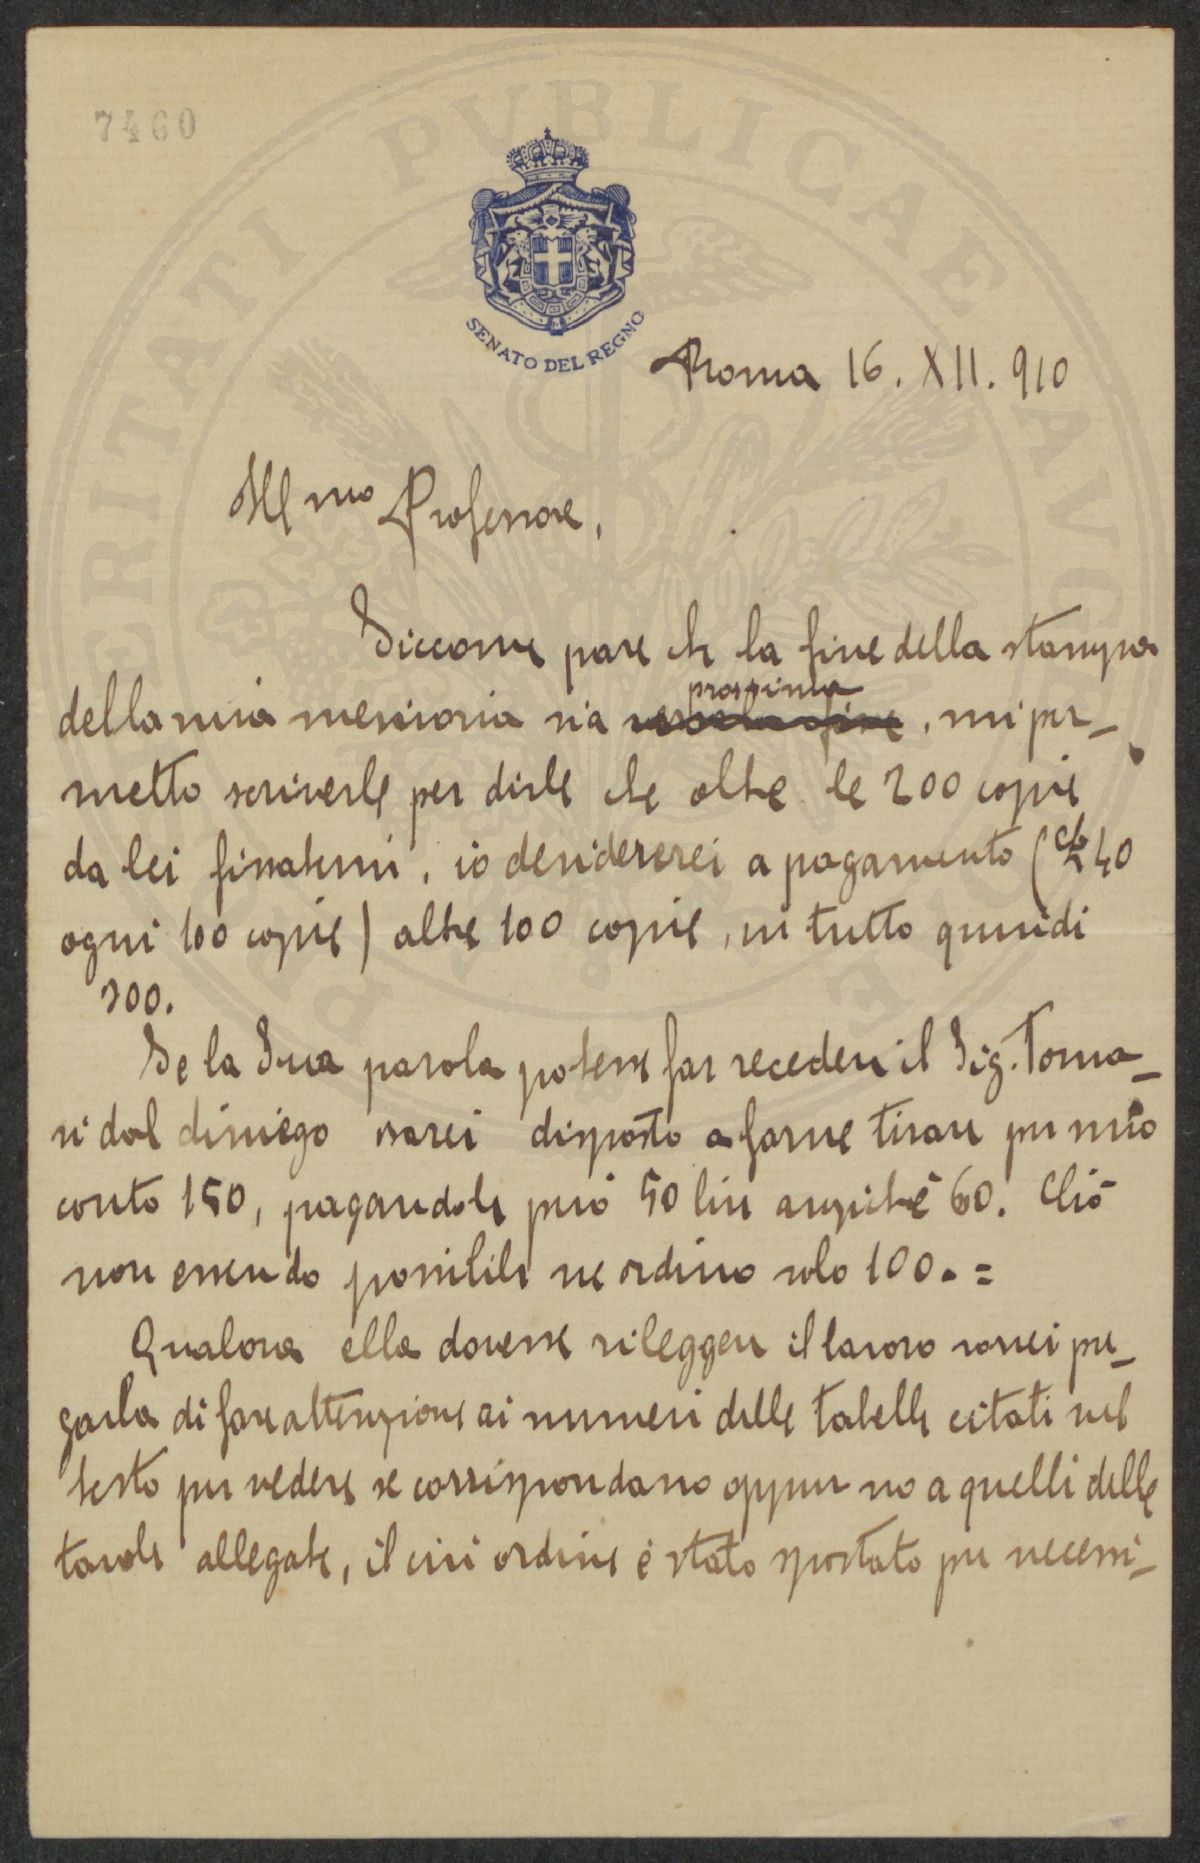 7460
SENATO DEL REGNO
Roma 16. XII. 910
Ill mo Professore,
Siccome pare che la fine della stampa
della mia memoria sia prossima, mi per-
metto scriverle per dirle che oltre le 200 copie
da lei fissatemi, io desidererei a pagamento ( 40
ogni 100 copie) altre 100 copie, in tutto quindi
300.
Se la Sua parola potesse far recedere il Sig. Toma-
si dal diniego sarei disposto a farne tirare per mio
conto 150, pagandole però 50 lire anzichè 60. Ciò
non essendo possibile ne ordino solo 100.=
Qualora ella dovesse rileggere il lavoro vorrei pre-
garla di fare attenzione ai numeri delle tabelle citati nel
testo per vedere se corrispondano oppure no a quelli delle
tavole allegate, il cui ordine è stato spostato per necessi-